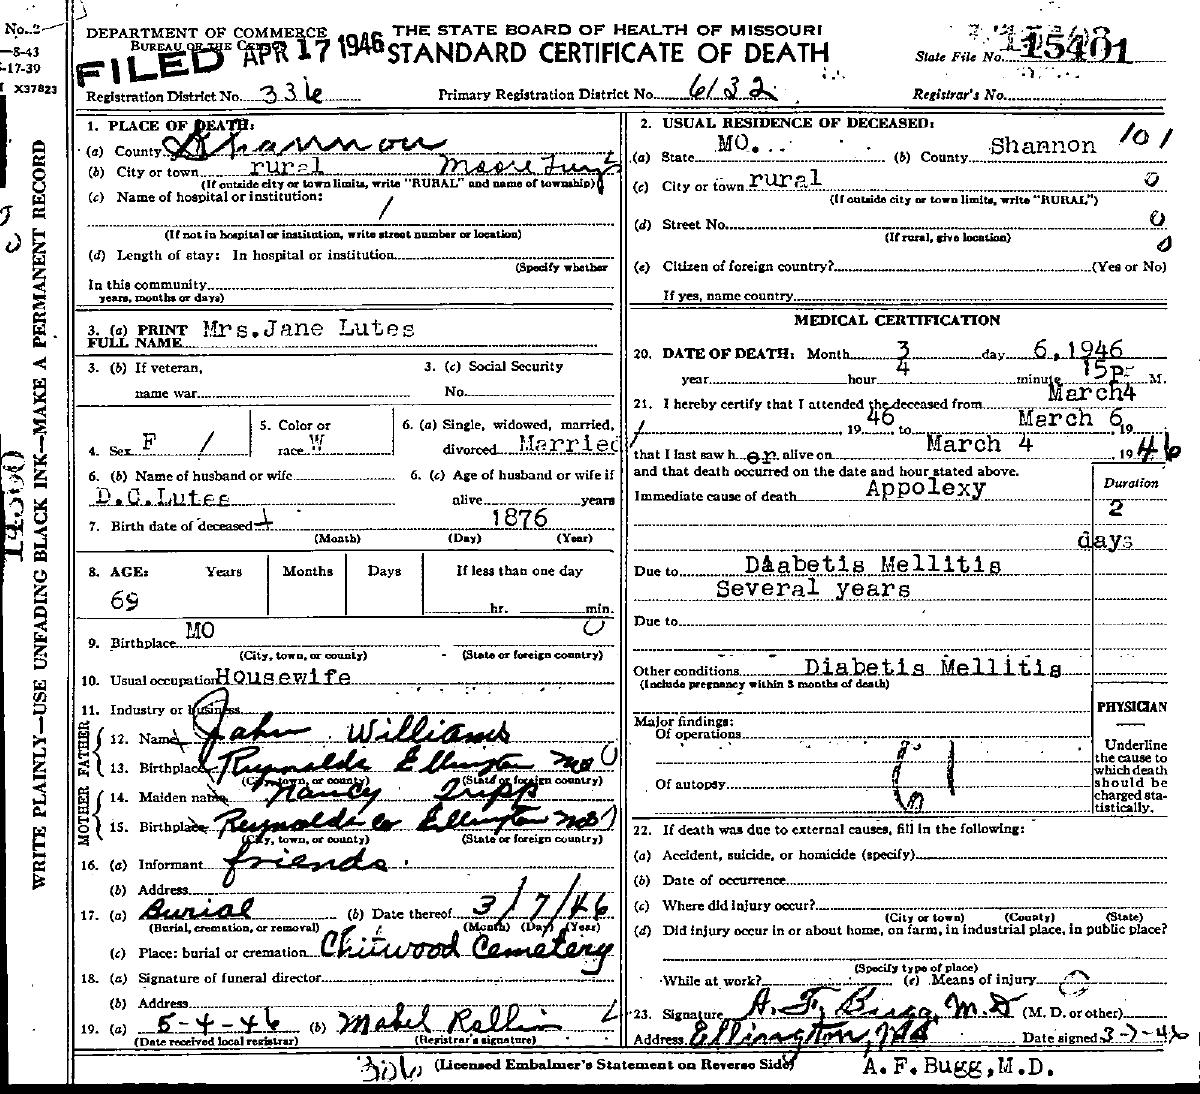 No. 2
-8-43
-17-39
X37823
WRITE PLAINLY—USE UNFADING BLACK INK—MAKE A PERMANENT RECORD
14300
DEPARTMENT OF COMMERCE
BUREAU OF THE CENSUS
FILED APR 17 1946
THE STATE BOARD OF HEALTH OF MISSOURI
STANDARD CERTIFICATE OF DEATH
State File No. 15401
Registration District No. 336
Primary Registration District No. 6132
Registrar's No.
1. PLACE OF DEATH:
(a) County Shannon
(b) City or town rural Moore
(If outside city or town limits, write "RURAL" and name of township)
(c) Name of hospital or institution:
/
(If not in hospital or institution, write street number or location)
(d) Length of stay: In hospital or institution
(Specify whether
In this community
years, months or days)
2. USUAL RESIDENCE OF DECEASED:
(a) State MO. (b) County Shannon 101
(c) City or town rural 0
(If outside city or town limits, write "RURAL")
(d) Street No. 0
(If rural, give location) 0
(e) Citizen of foreign country? (Yes or No)
If yes, name country
3. (a) PRINT FULL NAME Mrs.Jane Lutes
3. (b) If veteran,
name war
3. (c) Social Security
No.
4. Sex F /
5. Color or
race W
6. (a) Single, widowed, married,
divorced Married
6. (b) Name of husband or wife
D.C.Lutes
6. (c) Age of husband or wife if
alive years
7. Birth date of deceased 1876
(Month) (Day) (Year)
8. AGE: Years Months Days If less than one day
69
hr. min.
9. Birthplace MO 0
(City, town, or county) (State or foreign country)
10. Usual occupation Housewife
11. Industry or business
FATHER
12. Name John Williams
13. Birthplace Reynolds Ellington Mo 0
(City, town, or county) (State or foreign country)
MOTHER
14. Maiden name Nancy Tripp
15. Birthplace Reynolds Co Ellington Mo
(City, town, or county) (State or foreign country)
16. (a) Informant friends
(b) Address
17. (a) Burial (b) Date thereof 3/7/46
(Burial, cremation, or removal) (Month) (Day) (Year)
(c) Place: burial or cremation Chitwood Cemetery
18. (a) Signature of funeral director
(b) Address
19. (a) 5-4-46 (b) Mabel Rollin
(Date received local registrar) (Registrar's signature)
MEDICAL CERTIFICATION
20. DATE OF DEATH: Month 3 day 6,1946
year hour 4 minute 15p M.
21. I hereby certify that I attended the deceased from March4
1946 to March 6, 19
that I last saw her alive on March 4, 1946
and that death occurred on the date and hour stated above.
Immediate cause of death Appolexy
Duration
2
days
Due to Diabetis Mellitis
Several years
Due to
Other conditions Diabetis Mellitis
(Include pregnancy within 3 months of death)
Major findings:
Of operations
Of autopsy
61
PHYSICIAN
Underline
the cause to
which death
should be
charged sta-
tistically.
22. If death was due to external causes, fill in the following:
(a) Accident, suicide, or homicide (specify)
(b) Date of occurrence
(c) Where did injury occur?
(City or town) (County) (State)
(d) Did injury occur in or about home, on farm, in industrial place, in public place?
(Specify type of place)
While at work? (e) Means of injury
23. Signature A. F. Bugg, M.D (M. D. or other)
Address Ellington, Mo Date signed 3-7-46
336 (Licensed Embalmer's Statement on Reverse Side)
A. F. Bugg, M.D.